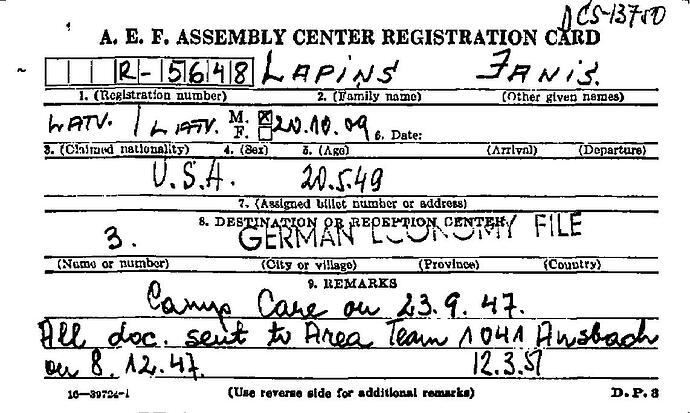 DCS-13750
A. E. F. ASSEMBLY CENTER REGISTRATION CARD
R-5648 LAPINS JANIS.
1. (Registration number) 2. (Family name) (Other given names)
LATV. / LATV. M. ☒ 20.10.09 6. Date:
F. ☐
3. (Claimed nationality) 4. (Sex) 5. (Age) (Arrival) (Departure)
U.S.A. 20.5.49
7. (Assigned billet number or address)
8. DESTINATION OR RECEPTION CENTER
3. GERMAN ECONOMY FILE
(Name or number) (City or village) (Province) (Country)
9. REMARKS
Camp Care on 23.9.47.
All doc. sent to Area Team 1041 Ansbach
on 8.12.47. 12.3.51
16—39724-1 (Use reverse side for additional remarks) D.P. 3